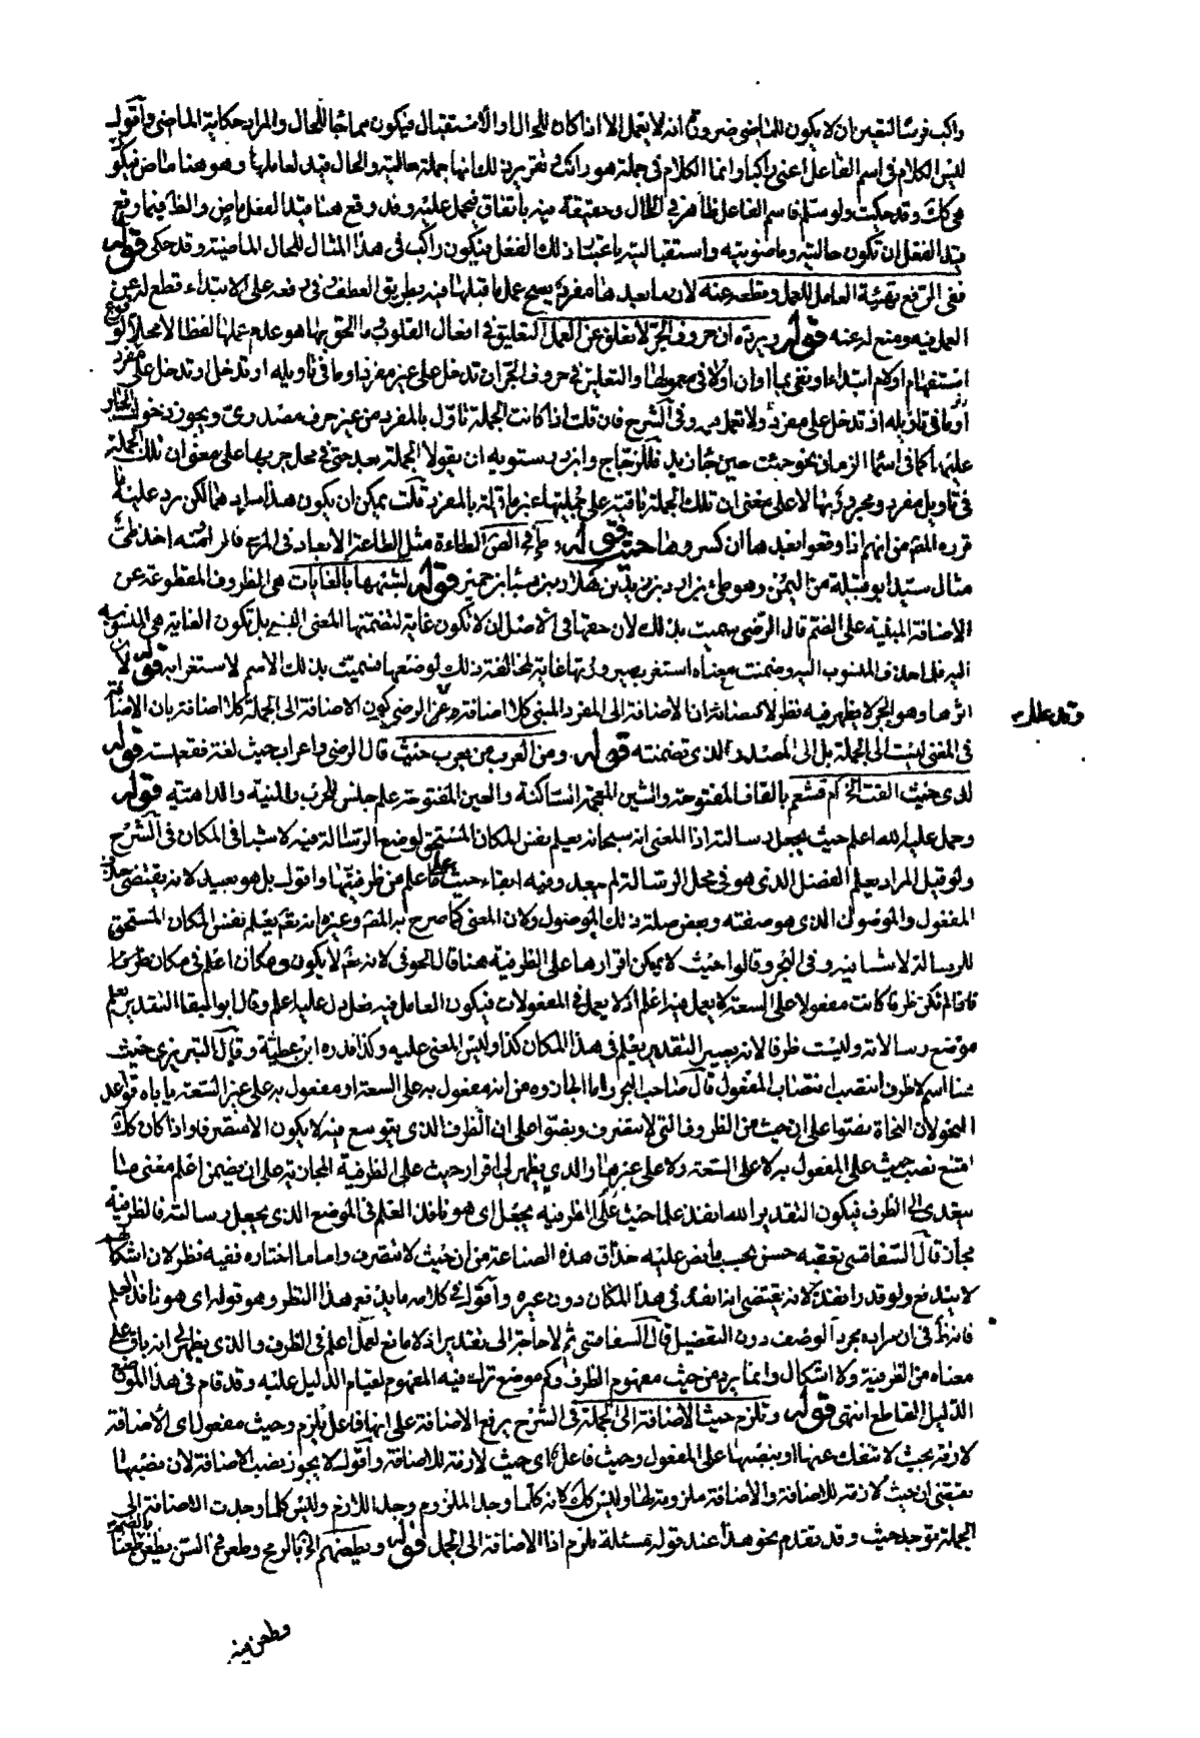 راكب فرسا لتعين ان لا يكون للماضي ضرورة انه لا يعمل الا اذا كان للحال او الاستقبال فيكون مجامعا للحال والمراد حكاية الماضي وأقول
ليس الكلام في اسم الفاعل اعني راكبا وانما الكلام في جملة هو راكب في تقريره لك انها جملة حالية والحال قيد لعاملها وهو هنا ماض فيكون
هي كك وقد حكيت ولو سلم فاسم الفاعل ظاهر في الحال وحقيقة فيه بأتفاق فحمل عليه وقد وقع هنا قيدا لفعل ماض والظ فيما وقع
قيدا لفعل ان تكون حاليته وماضويته واستقباليته باعتبار ذلك الفعل فيكون راكب في هذا المثال للحال الماضية وقد حكى قوله
ففي الرفع تهيئة العامل للعمل وقطعه عنه لان ما بعدها مفرد يصح عمل ما قبلها فيه وبطريق العطف في رفعه على الابتداء قطع له عن
العمل فيه ومنع له عنه قوله ويرده ان حروف الجر لا تعلق عن العمل التعليق في افعال القلوب وما الحق بها هو عدم عملها لفظا لا محلا لوقوع
استفهام او لام ابتداء او نفي بما او ان او لا في معمولها والتعليق في حروف الجر ان تدخل على غير مفرد او ما في تأويله او تدخل او تدخل على مفرد
او ما في تأويله او تدخل على مفرد ولا تعمل فيه وفي الشرح فان قلت اذا كانت الجملة تأول بالمفرد من غير حرف مصدري ويجوز دخول الجار
عليها كما في اسماء الزمان نحو جئت حين جاء زيد فللزجاج وابن درستويه ان يقولا الجملة بعد حتى في محل جر بها على معنى ان تلك الجملة
في تأويل مفرد ومجرور بها لا على معنى ان تلك الجملة باقية على جملتها غير مأولة بالمفرد قلت يمكن ان يكون هذا مرادهما لكن يرد عليه ما
قرره المص من انهم اذا وقعوا بعدها ان كسروها حيث قوله وطئ في الصحاح الطاءة مثل الطاعة الابعاد في المرعى قال ومنه اخذ طئ
مثال سيد ابو قبيلة من اليمن وهو طئ بن ادد بن زيد بن كهلان بن سبا بن حمير قوله لشبهها بالغايات هي الظروف المقطوعة عن
الاضافة المبنية على الضم قال الرضي سميت بذلك لان حقها في الأصل ان لا تكون غاية لتضمنها المعنى النسبي بل تكون الغاية هي المنسوب
اليه فلما حذف المنسوب اليه وضمنت معناه استغرب صيرورتها غاية لمخالفة ذلك لوضعها فسميت بذلك الاسم لاستغرابه قوله لان
اثرها وهو الجر لا يظهر فيه نظر لان مضافة ان الاضافة الى المفرد المبني كلا اضافة وعن الرضي كون الاضافة الى الجملة كلا اضافة بان الاضافة
وقد علمت
في المعنى ليست الى الجملة بل الى المصدر الذي تضمنته قوله ومن العرب من يعرب حيث قال الرضي واعراب حيث لغة فقعسية قوله
لدى حيث القت الخ ام قشعم بالقاف المفتوحة والشين المعجمة الساكنة والعين المفتوحة علم جنس للحرب والمنية والداهية قوله
وحمل عليه الله اعلم حيث يجعل رسالته اذ المعنى انه سبحانه يعلم نفس المكان المستحق لوضع الرسالة فيه لا شيئا في المكان في الشرح
ولو قيل المراد يعلم الفضل الذي هو في محل الرسالة لم يبعد وفيه ابقاء حيث على ما علم من ظرفيتها واقول بل هو بعيد لانه يقتضي حذف
المفعول والموصول الذي هو صفته وبعض صلة ذلك الموصول ولان المعنى كما صرح به المص وغيره انه تع يعلم نفس المكان المستحق
للرسالة لا شيئا فيه وفي البحر وقالوا حيث لا يمكن اقرارها على الظرفية هنا قال الحوفي لانه تع لا يكون في مكان اعلم في مكان ظرفا
فاذا لم تكن ظرفا كانت مفعولا على السعة لا يعمل فيه اعلم اذ لا يعمل في المفعولات فيكون العامل فيه فعل دل عليه اعلم وقال ابو البقا التقدير يعلم
موضع رسالاته وليست ظرفا لانه يصير التقدير يعلم في هذا المكان كذا وليس المعنى عليه وكذا قدره ابن عطية وقال التبريزي حيث
هنا اسم لا ظرف انتصب انتصاب المفعول قال صاحب البحر واما اجازوه من انه مفعول به على السعة او مفعول به على غير السعة يأباه قواعد
النحو لان النحاة نصوا على ان حيث من الظروف التي لا تتصرف ونصوا على ان الظرف الذي يتوسع فيه لا يكون الا متصرفا واذا كان كك
امتنع نصب حيث على المفعول به لا على السعة ولا على غيرها والذي يظهر لي اقرار حيث على الظرفية المجازية على ان يضمن اعلم معنى ما
يتعدى الى الظرف فيكون التقدير الله انفذ علما حيث على الظرفية يجعل اي هو نافذ العلم في الموضع الذي يجعل رسالته فالظرفية
مجاز قال السفاقسي تعقبه حسن بحسب ما نص عليه حذاق هذه الصناعة من ان حيث لا تتصرف واما ما اختاره ففيه نظر لان اشكالهم
لا يندفع ولو قدر انفذ لانه يقتضي انه انفذ في هذا المكان دون غيره وأقول في كلامه ما يدفع هذا النظر وهو قوله اي هو نافذ العلم
فانه ظ في ان مراده مجرد الوصف دون التفضيل قال السفاقسي ثم لا حاجة الى تقدير اذ لا مانع لعمل اعلم في الظرف والذي يظهر لي انه باق على
معناه من الظرفية ولا اشكال وانما يرد من حيث مفهوم الظرف وكم موضع ترك فيه المفهوم لقيام الدليل عليه وقد قام في هذا الموضع
الدليل القاطع انتهى قوله وتلزم حيث الاضافة الى الجملة في الشرح برفع الاضافة على انها فاعل يلزم وحيث مفعول اي الأضافة
لازمة بحيث لا تنفك عنها او بنصبها على المفعول وحيث فاعل اي حيث لازمة للاضافة وأقول لا يجوز نصب الاضافة لان نصبها
يقتضي ان حيث لازمة للاضافة والاضافة ملزومة لها وليس كك لانه كلما وجد الملزوم وجد اللازم وليس كلما وجدت الاضافة الى
الجملة توجد حيث وقد تقدم نحو هذا عند قوله مسئلة تلزم اذا الاضافة الى الجمل قوله ويطعنهم الخ بالرمح وطعن في السن يطعن بالضم طعنا
وطعن فيه